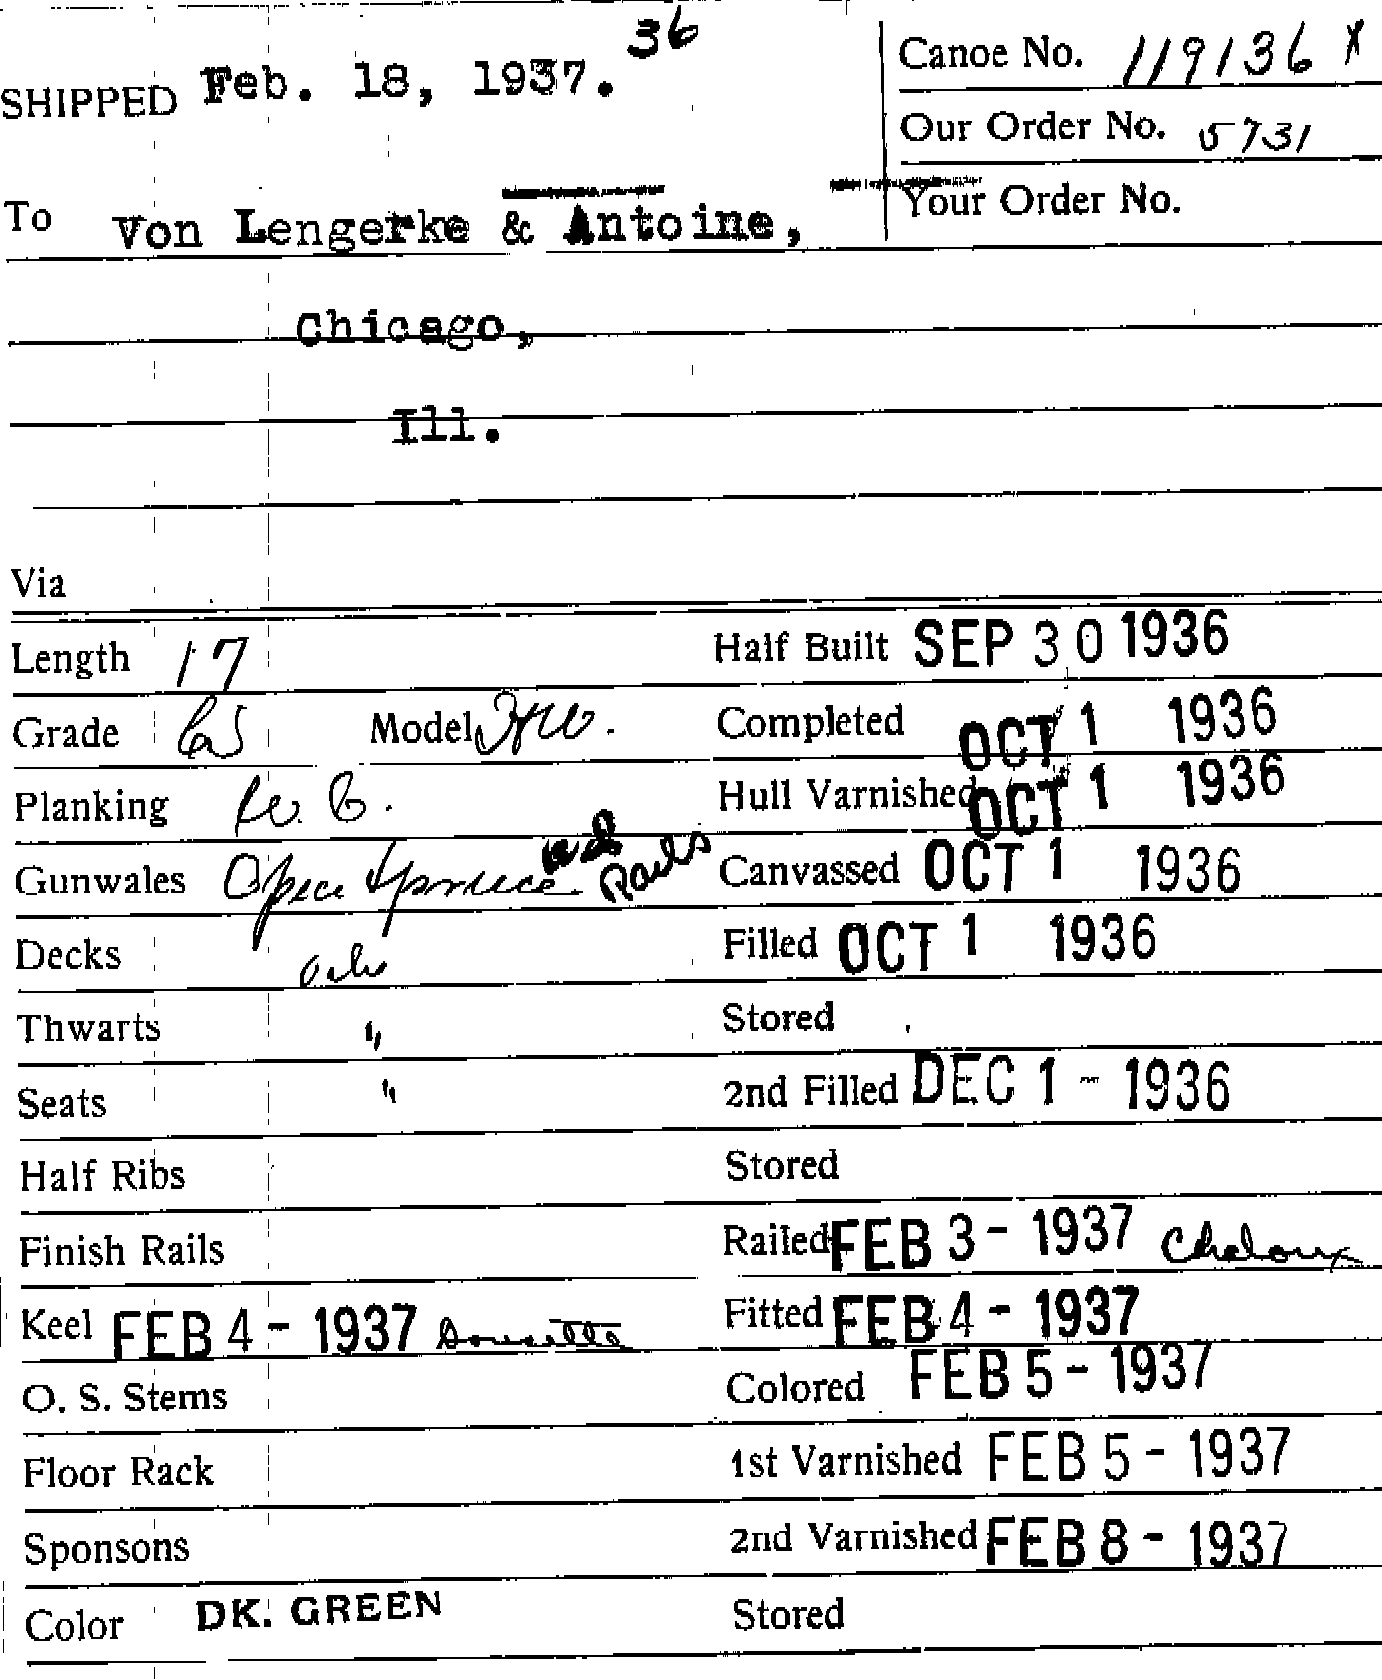 36
SHIPPED Feb. 18, 1937.
Canoe No. 119136 X
Our Order No. 5731
Your Order No.
To Von Lengerke & Antoine,
Chicago,
Ill.
Via
Length 17
Half Built SEP 30 1936
Grade CS Model H.W.
Completed OCT 1 1936
Planking R.C.
Hull Varnished OCT 1 1936
Gunwales Open Spruce and Rails
Canvassed OCT 1 1936
Decks oak
Filled OCT 1 1936
Thwarts "
Stored
Seats "
2nd Filled DEC 1 - 1936
Half Ribs
Stored
Finish Rails
Railed FEB 3 - 1937 Chaloux
Keel FEB 4 - 1937
Fitted FEB 4 - 1937
O. S. Stems
Colored FEB 5 - 1937
Floor Rack
1st Varnished FEB 5 - 1937
Sponsons
2nd Varnished FEB 8 - 1937
Color DK. GREEN
Stored